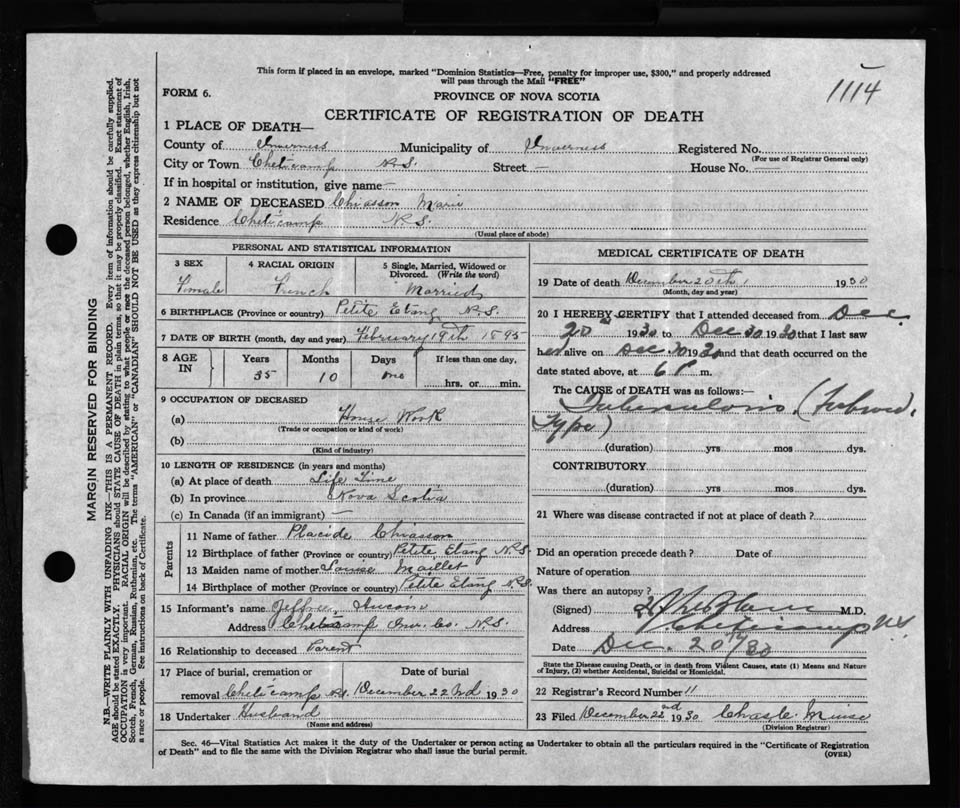 This form if placed in an envelope, marked "Dominion Statistics—Free, penalty for improper use, $300," and properly addressed
will pass through the Mail "FREE"
1114
FORM 6.
PROVINCE OF NOVA SCOTIA
CERTIFICATE OF REGISTRATION OF DEATH
1 PLACE OF DEATH—
County of Inverness Municipality of Inverness Registered No.
(For use of Registrar General only)
City or Town Cheticamp N.S. Street — House No. —
If in hospital or institution, give name —
2 NAME OF DECEASED Chiasson Marie
Residence Cheticamp N.S.
(Usual place of abode)
PERSONAL AND STATISTICAL INFORMATION
3 SEX 4 RACIAL ORIGIN 5 Single, Married, Widowed or
Divorced. (Write the word)
Female French Married
6 BIRTHPLACE (Province or country) Petite Etang N.S.
7 DATE OF BIRTH (month, day and year) February 19th 1895
8 AGE IN Years Months Days If less than one day,
35 10 one hrs. or min.
9 OCCUPATION OF DECEASED
(a) House Work
(Trade or occupation or kind of work)
(b)
(Kind of industry)
10 LENGTH OF RESIDENCE (in years and months)
(a) At place of death Life Time
(b) In province Nova Scotia
(c) In Canada (if an immigrant) —
Parents
11 Name of father Placide Chiasson
12 Birthplace of father (Province or country) Petite Etang N.S.
13 Maiden name of mother Louise Maillet
14 Birthplace of mother (Province or country) Petite Etang N.S.
15 Informant's name Jeffrey
Address Cheticamp Inv. Co. N.S.
16 Relationship to deceased Parent
17 Place of burial, cremation or Date of burial
removal Cheticamp N.S. December 22nd 1930
18 Undertaker Husband
(Name and address)
MEDICAL CERTIFICATE OF DEATH
19 Date of death December 20th, 1930
(Month, day and year)
20 I HEREBY CERTIFY that I attended deceased from Dec.
20 1930 to Dec 20 1930 that I last saw
her alive on Dec 20 1930 and that death occurred on the
date stated above, at 6 P m.
The CAUSE of DEATH was as follows:—
Tuberculosis (
Type)
(duration) yrs mos dys.
CONTRIBUTORY
(duration) yrs mos dys.
21 Where was disease contracted if not at place of death ?
Did an operation precede death ? Date of
Nature of operation
Was there an autopsy ?
(Signed) M.D.
Address Cheticamp N.S
Date Dec. 20/30
State the Disease causing Death, or in death from Violent Causes, state (1) Means and Nature
of Injury, (2) whether Accidental, Suicidal or Homicidal.
22 Registrar's Record Number 11
23 Filed December 22nd 1930 Chas
(Division Registrar)
Sec. 46—Vital Statistics Act makes it the duty of the Undertaker or person acting as Undertaker to obtain all the particulars required in the "Certificate of Registration
of Death" and to file the same with the Division Registrar who shall issue the burial permit.
(OVER)
MARGIN RESERVED FOR BINDING
N.B.—WRITE PLAINLY WITH UNFADING INK—THIS IS A PERMANENT RECORD. Every item of information should be carefully supplied.
AGE should be stated EXACTLY. PHYSICIANS should STATE CAUSE OF DEATH in plain terms, so that it may be properly classified. Exact statement of
OCCUPATION is very important. RACIAL ORIGIN will be described by stating to what people or race the deceased person belonged, whether English, Irish,
Scotch, French, German, Russian, Ruthenian, etc. The terms "AMERICAN" or "CANADIAN" SHOULD NOT BE USED as they express citizenship but not
a race or people. See instructions on back of Certificate.